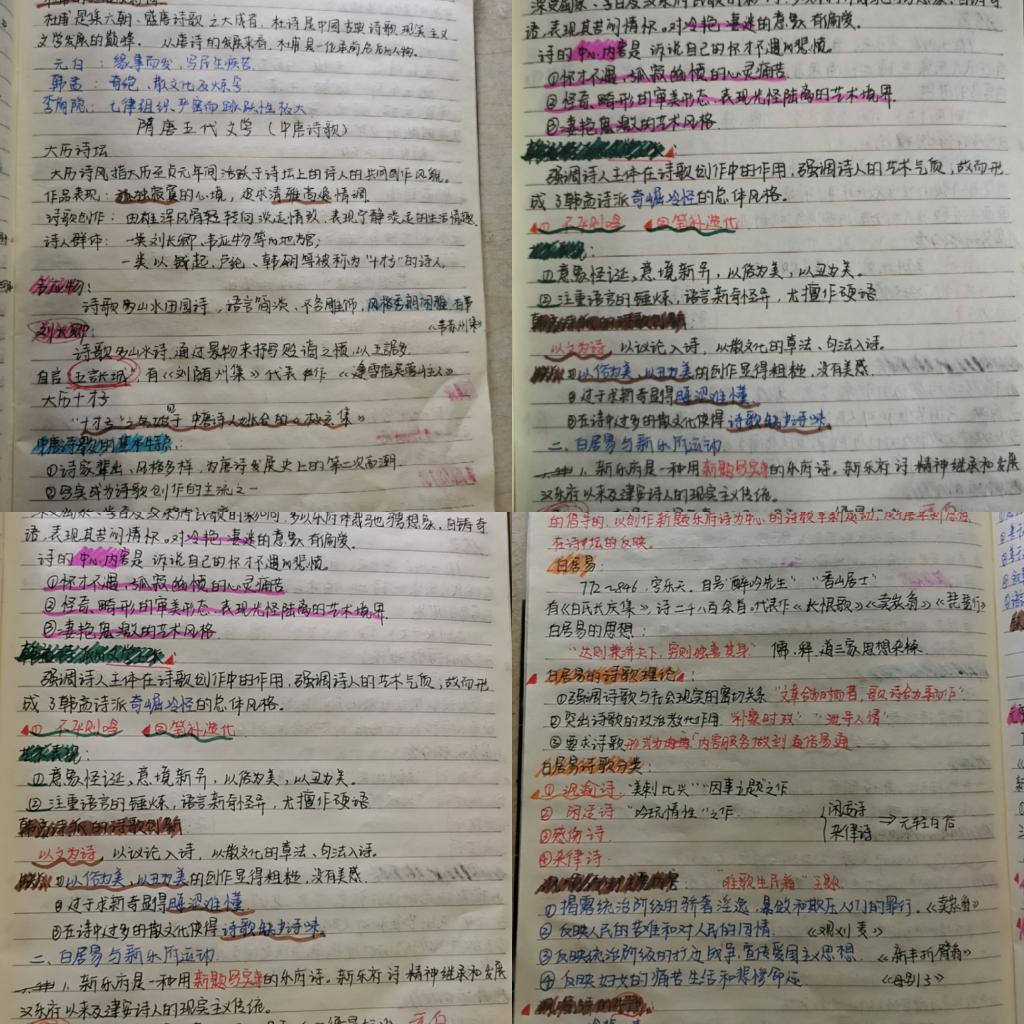 杜甫是集六朝、盛唐诗歌之大成者，杜诗是中国古典诗歌现实主义
文学发展的巅峰。从唐诗的发展来看，杜甫是一位承前启后的人物。
元白：缘事而发，写民生疾苦
韩孟：奇绝、散文化及炼字
李商隐：七律组织严密而跳跃性极大
隋唐五代文学（中唐诗歌）
大历诗坛
大历诗风指大历至贞元年间活跃于诗坛上的诗人的共同创作风貌。
作品表现：孤独寂寞的心境，追求清雅高逸情调
诗歌创作：由雄浑风骨轻转向淡远情致，表现宁静淡远的生活情趣
诗人群体：一类刘长卿、韦应物等的地方官；
一类以钱起、卢纶、韩翃等被称为"十才子"的诗人
韦应物：
诗歌多山水田园诗，语言简淡，不多雕饰，风格高朗闲雅，有事
《韦苏州集》
刘长卿
诗歌多山水诗，通过景物来抒写贬谪之恨，以五言多
自言"五言长城"，有《刘随州集》代表作《逢雪宿芙蓉山主人》
大历十才子
"十才子"之名始见于中唐诗人姚合的《极玄集》
中唐诗歌的基本特点：
①诗家辈出、风格多样，为唐诗发展史上的第二次高潮
②写实成为诗歌创作的主流之一
语，表现其苦闷情怀。对冷艳凄迷的意象有偏爱
诗的中心内容是诉说自己的怀才不遇的悲愤。
①怀才不遇、孤寂幽愤的心灵痛苦
②怪奇、畸形的审美形态、表现光怪陆离的艺术境界
③凄艳思激的艺术风格
强调诗人主体在诗歌创作中的作用，强调诗人的艺术气质，故而形
成了韩孟诗派奇崛冷怪的总体风格。
①不平则鸣 ②笔补造化
艺术表现：
①意象怪诞、意境新异，以俗为美，以丑为美。
②注重语言的锤炼，语言新奇怪异，尤擅作硬语
韩孟诗派的诗歌创新
以文为诗，以议论入诗，以散文化的章法、句法入诗。
①以俗为美，以丑为美的创作显得粗糙，没有美感
②过于求新奇显得晦涩难懂
③在诗中过多的散文化使得诗歌缺少诗味
二、白居易与新乐府运动
1、新乐府是一种用新题写实事的乐府诗。新乐府诗精神继承和发展
汉乐府以来及建安诗人的现实主义传统。
语，表现其苦闷情怀。对冷艳凄迷的意象有偏爱
诗的中心内容是诉说自己的怀才不遇的悲愤。
①怀才不遇、孤寂幽愤的心灵痛苦
②怪奇、畸形的审美形态、表现光怪陆离的艺术境界
③凄艳思激的艺术风格
强调诗人主体在诗歌创作中的作用，强调诗人的艺术气质，故而形
成了韩孟诗派奇崛冷怪的总体风格。
①不平则鸣 ②笔补造化
艺术表现：
①意象怪诞、意境新异，以俗为美，以丑为美。
②注重语言的锤炼，语言新奇怪异，尤擅作硬语
韩孟诗派的诗歌创新
以文为诗，以议论入诗，以散文化的章法、句法入诗。
①以俗为美，以丑为美的创作显得粗糙，没有美感
②过于求新奇显得晦涩难懂
③在诗中过多的散文化使得诗歌缺少诗味
二、白居易与新乐府运动
1、新乐府是一种用新题写实事的乐府诗。新乐府诗精神继承和发展
汉乐府以来及建安诗人的现实主义传统。
的倡导的，以创作新题乐府诗为中心的诗歌革新运动
在诗坛的反映。
白居易：
772~846，字乐天，自号"醉吟先生""香山居士"
有《白氏长庆集》，诗二千八百余首，代表作《长恨歌》《卖炭翁》《琵琶行》
白居易的思想：
"达则兼济天下，穷则独善其身" 儒、释、道三家思想杂糅
白居易的诗歌理论：
①强调诗歌与社会现实的密切关系"文章合为时而著，歌诗合为事而作"
②突出诗歌的政治教化作用"补察时政""泄导人情"
③要求诗歌形式为内容服务做到直俗易通
白居易诗歌分类：
①讽谕诗"美刺比兴""因事立题"之作
②闲适诗"吟玩情性"之作
③感伤诗
④杂律诗
闲适诗
杂律诗
⇒元轻白俗
"唯歌生民病"主题
①揭露统治阶级的骄奢淫逸、暴敛和欺压人们的罪行。《卖炭翁》
②反映人民的苦难和对人民的同情 《观刈麦》
③反映统治阶级的扩边战争，宣传爱国主义思想 《新丰折臂翁》
④反映妇女的痛苦生活和悲惨命运 《母别子》